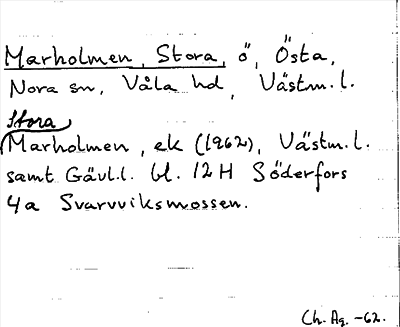 Marholmen, Stora, ö, Östa,
Nora sn, Våla hd, Västm.l.
Stora
Marholmen, ek (1962), Västm.l.
samt Gävl.l. bl. 12H Söderfors
4a Svarvviksmossen.
Ch. Ag. -62.